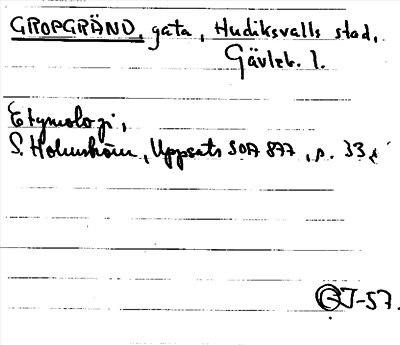 GROPGRÄND, gata, Hudiksvalls stad,
Gävleb. l.
Etymologi,
S. Holmström, Uppsats SOA 877, s. 33